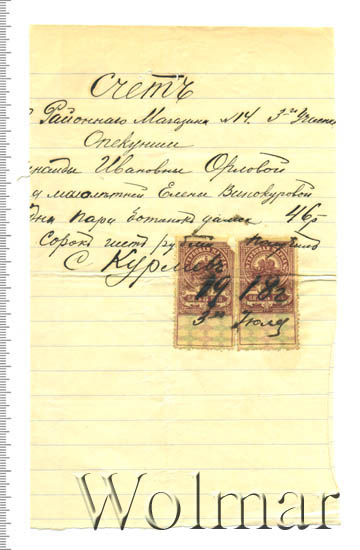 Счетъ
Районнаго Магазина №14. 3го
Опекунши
Ивановны Орловой
малолѣтней Елены Винокуровой
одна пара ботинокъ дамс 46р
Сорокъ шесть рублей получилъ
С Курмы
19 18г
3го Іюля
Wolmar